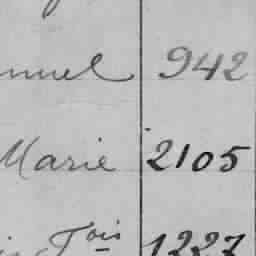 nuel 942
Marie 2105
is Fois 1227